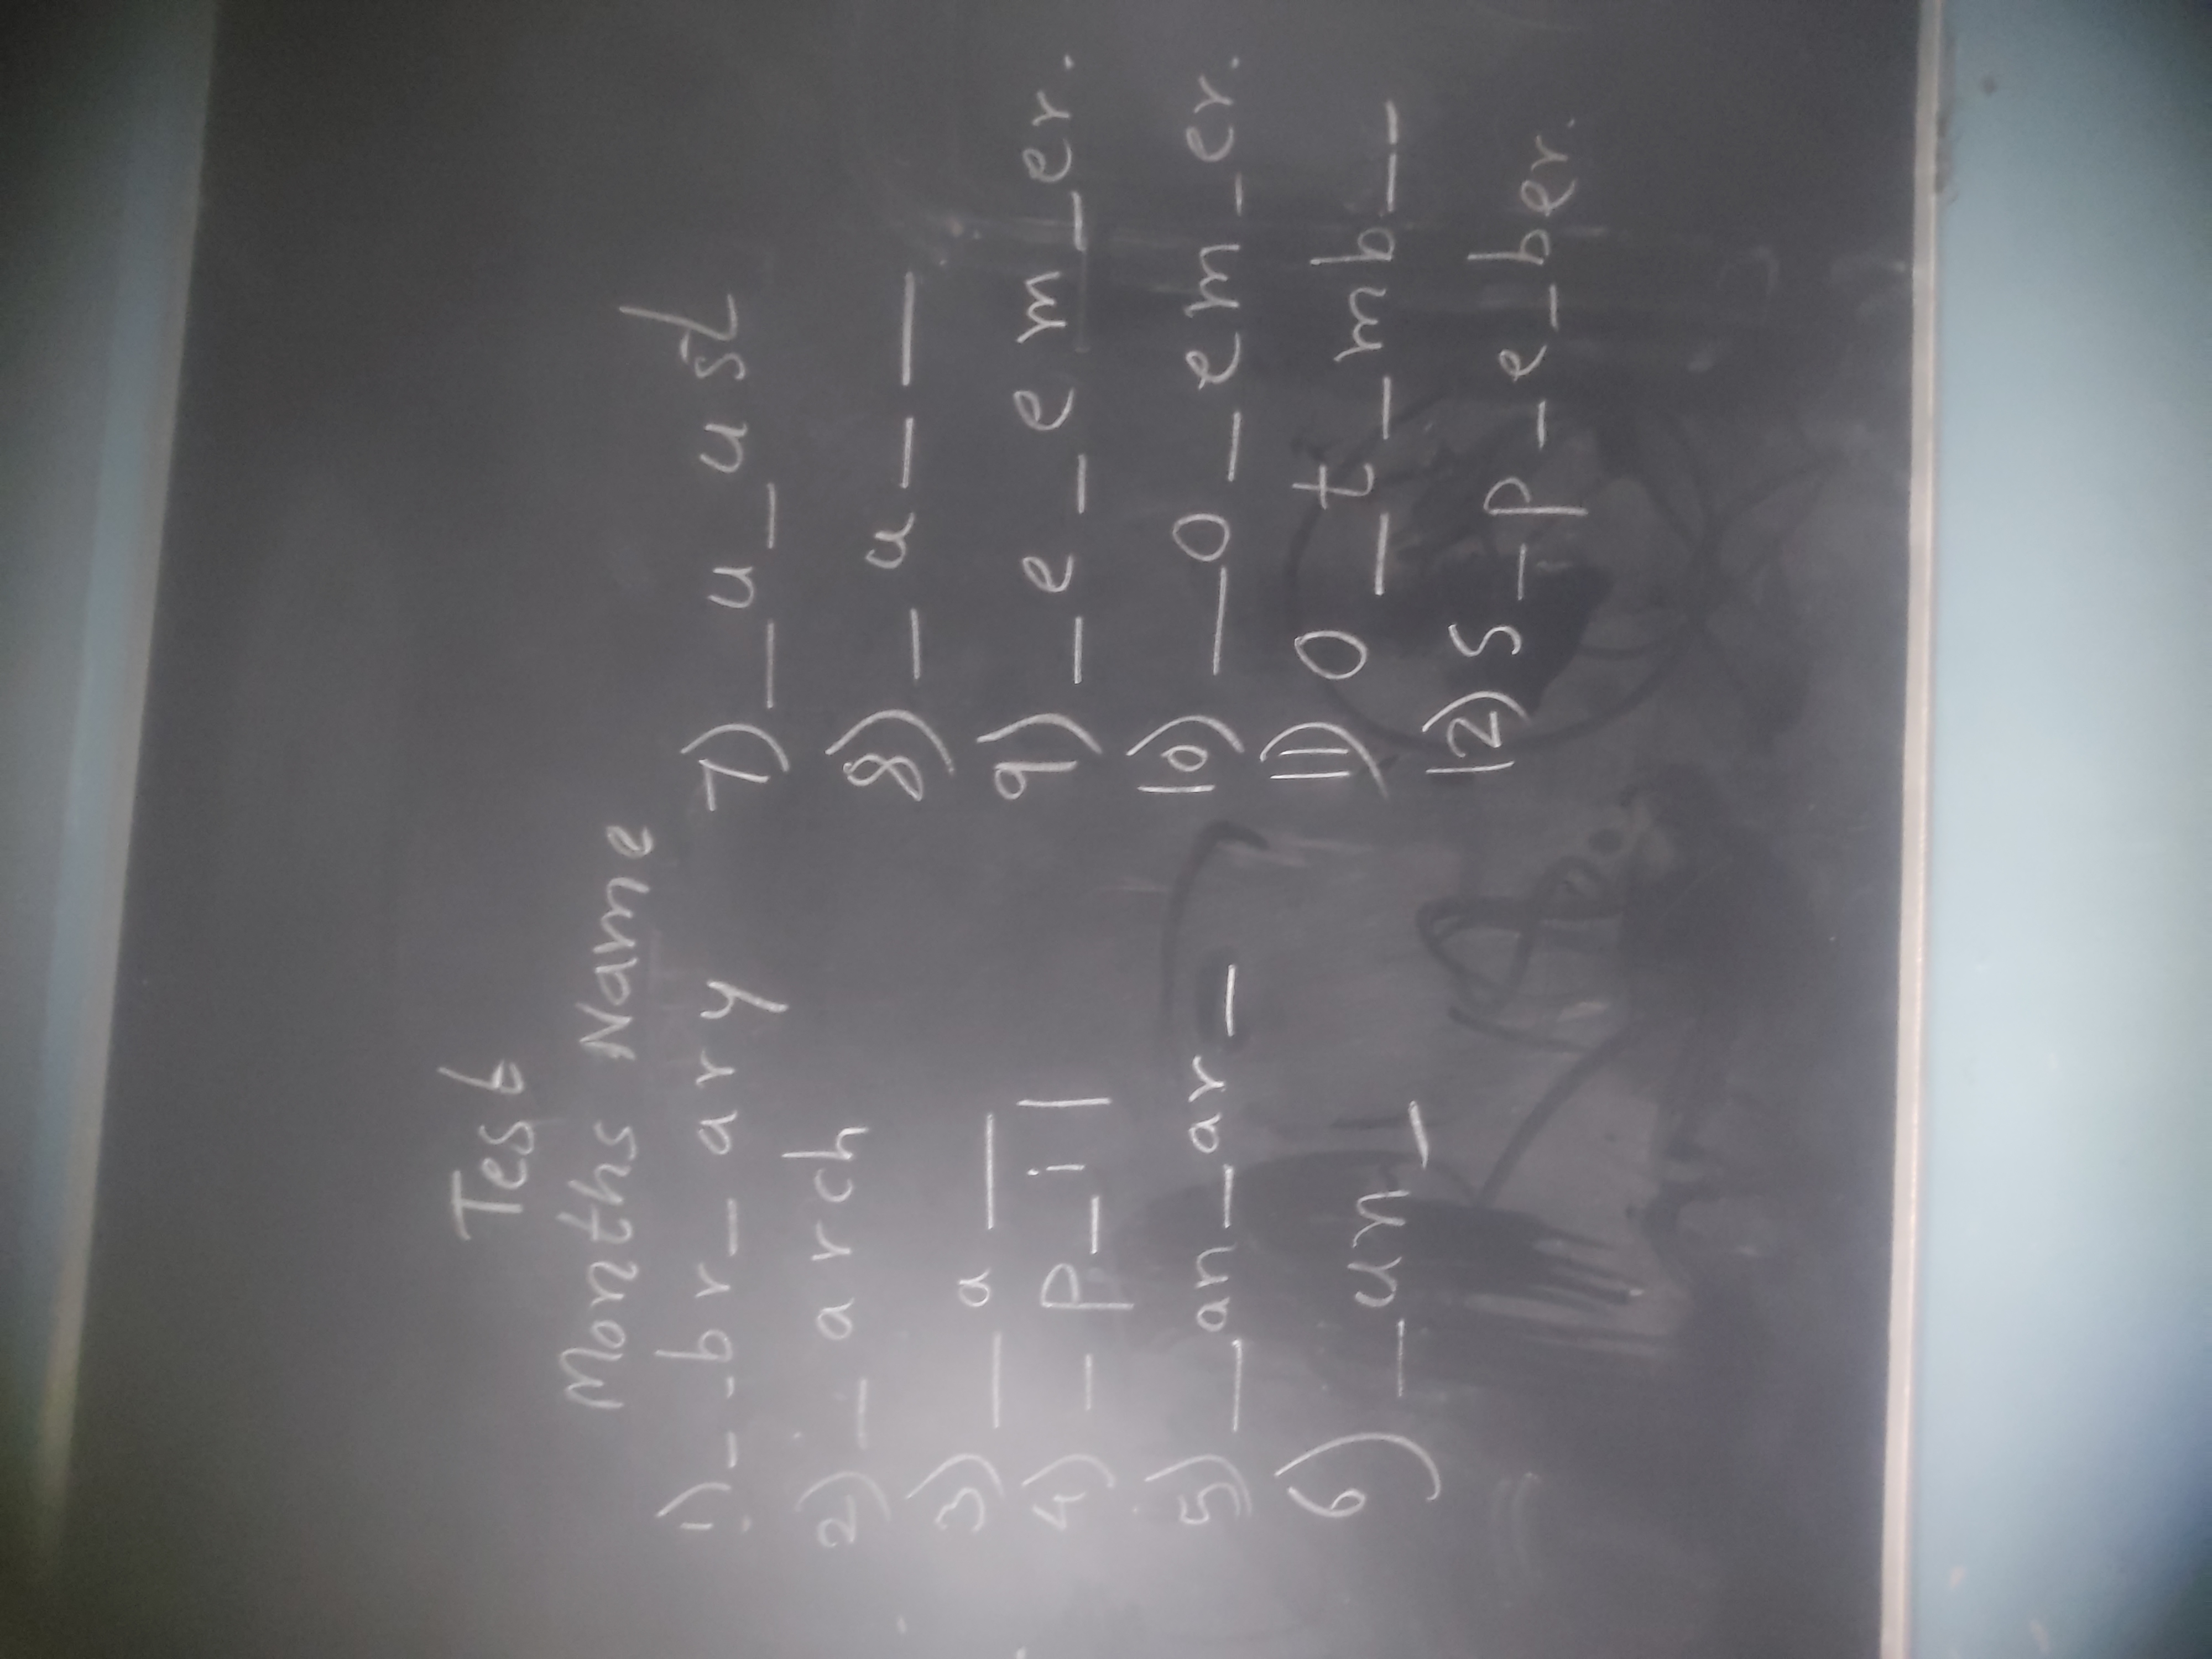 Test
Months Name
1) _ _ br _ ary
2) _ arch
3) _ a _
4) _ p _ il
5) _ an _ ar _
6) _ un _
7) _ u _ ust
8) _ u _ _
9) _ e _ em _ er.
10) _ o _ em _ er.
11) O _ t _ mb _ _
12) S _ p _ e _ ber.